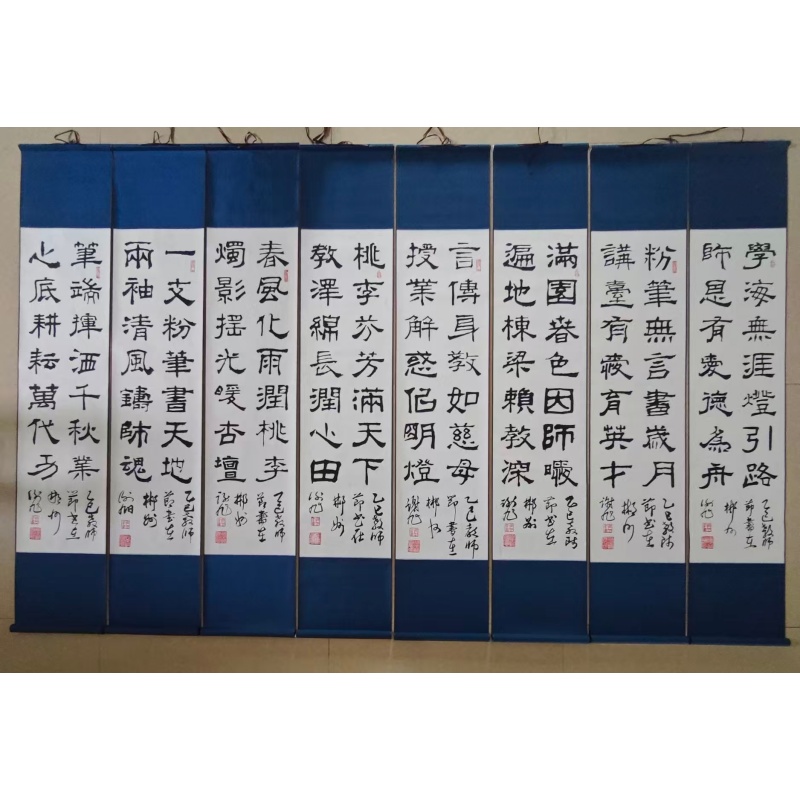 學海無涯燈引路
師恩有愛德為舟
乙巳教師
節書在
郴州
粉筆無言書歲月
講臺有愛育英才
乙巳教師
節書在
郴州
滿園春色因師暖
遍地棟梁賴教深
乙巳教師
節書在
郴州
言傳身教如慈母
授業解惑佀明燈
乙巳教師
節書在
郴州
桃李芬芳滿天下
教澤綿長潤心田
乙巳教師
節書在
郴州
春風化雨潤桃李
燭影搖光暖杏壇
乙巳教師
節書在
郴州
一支粉筆書天地
兩袖清風鑄師魂
乙巳教師
節書在
郴州
筆端揮洒千秋業
心底耕耘萬代功
乙巳教師
節書在
郴州